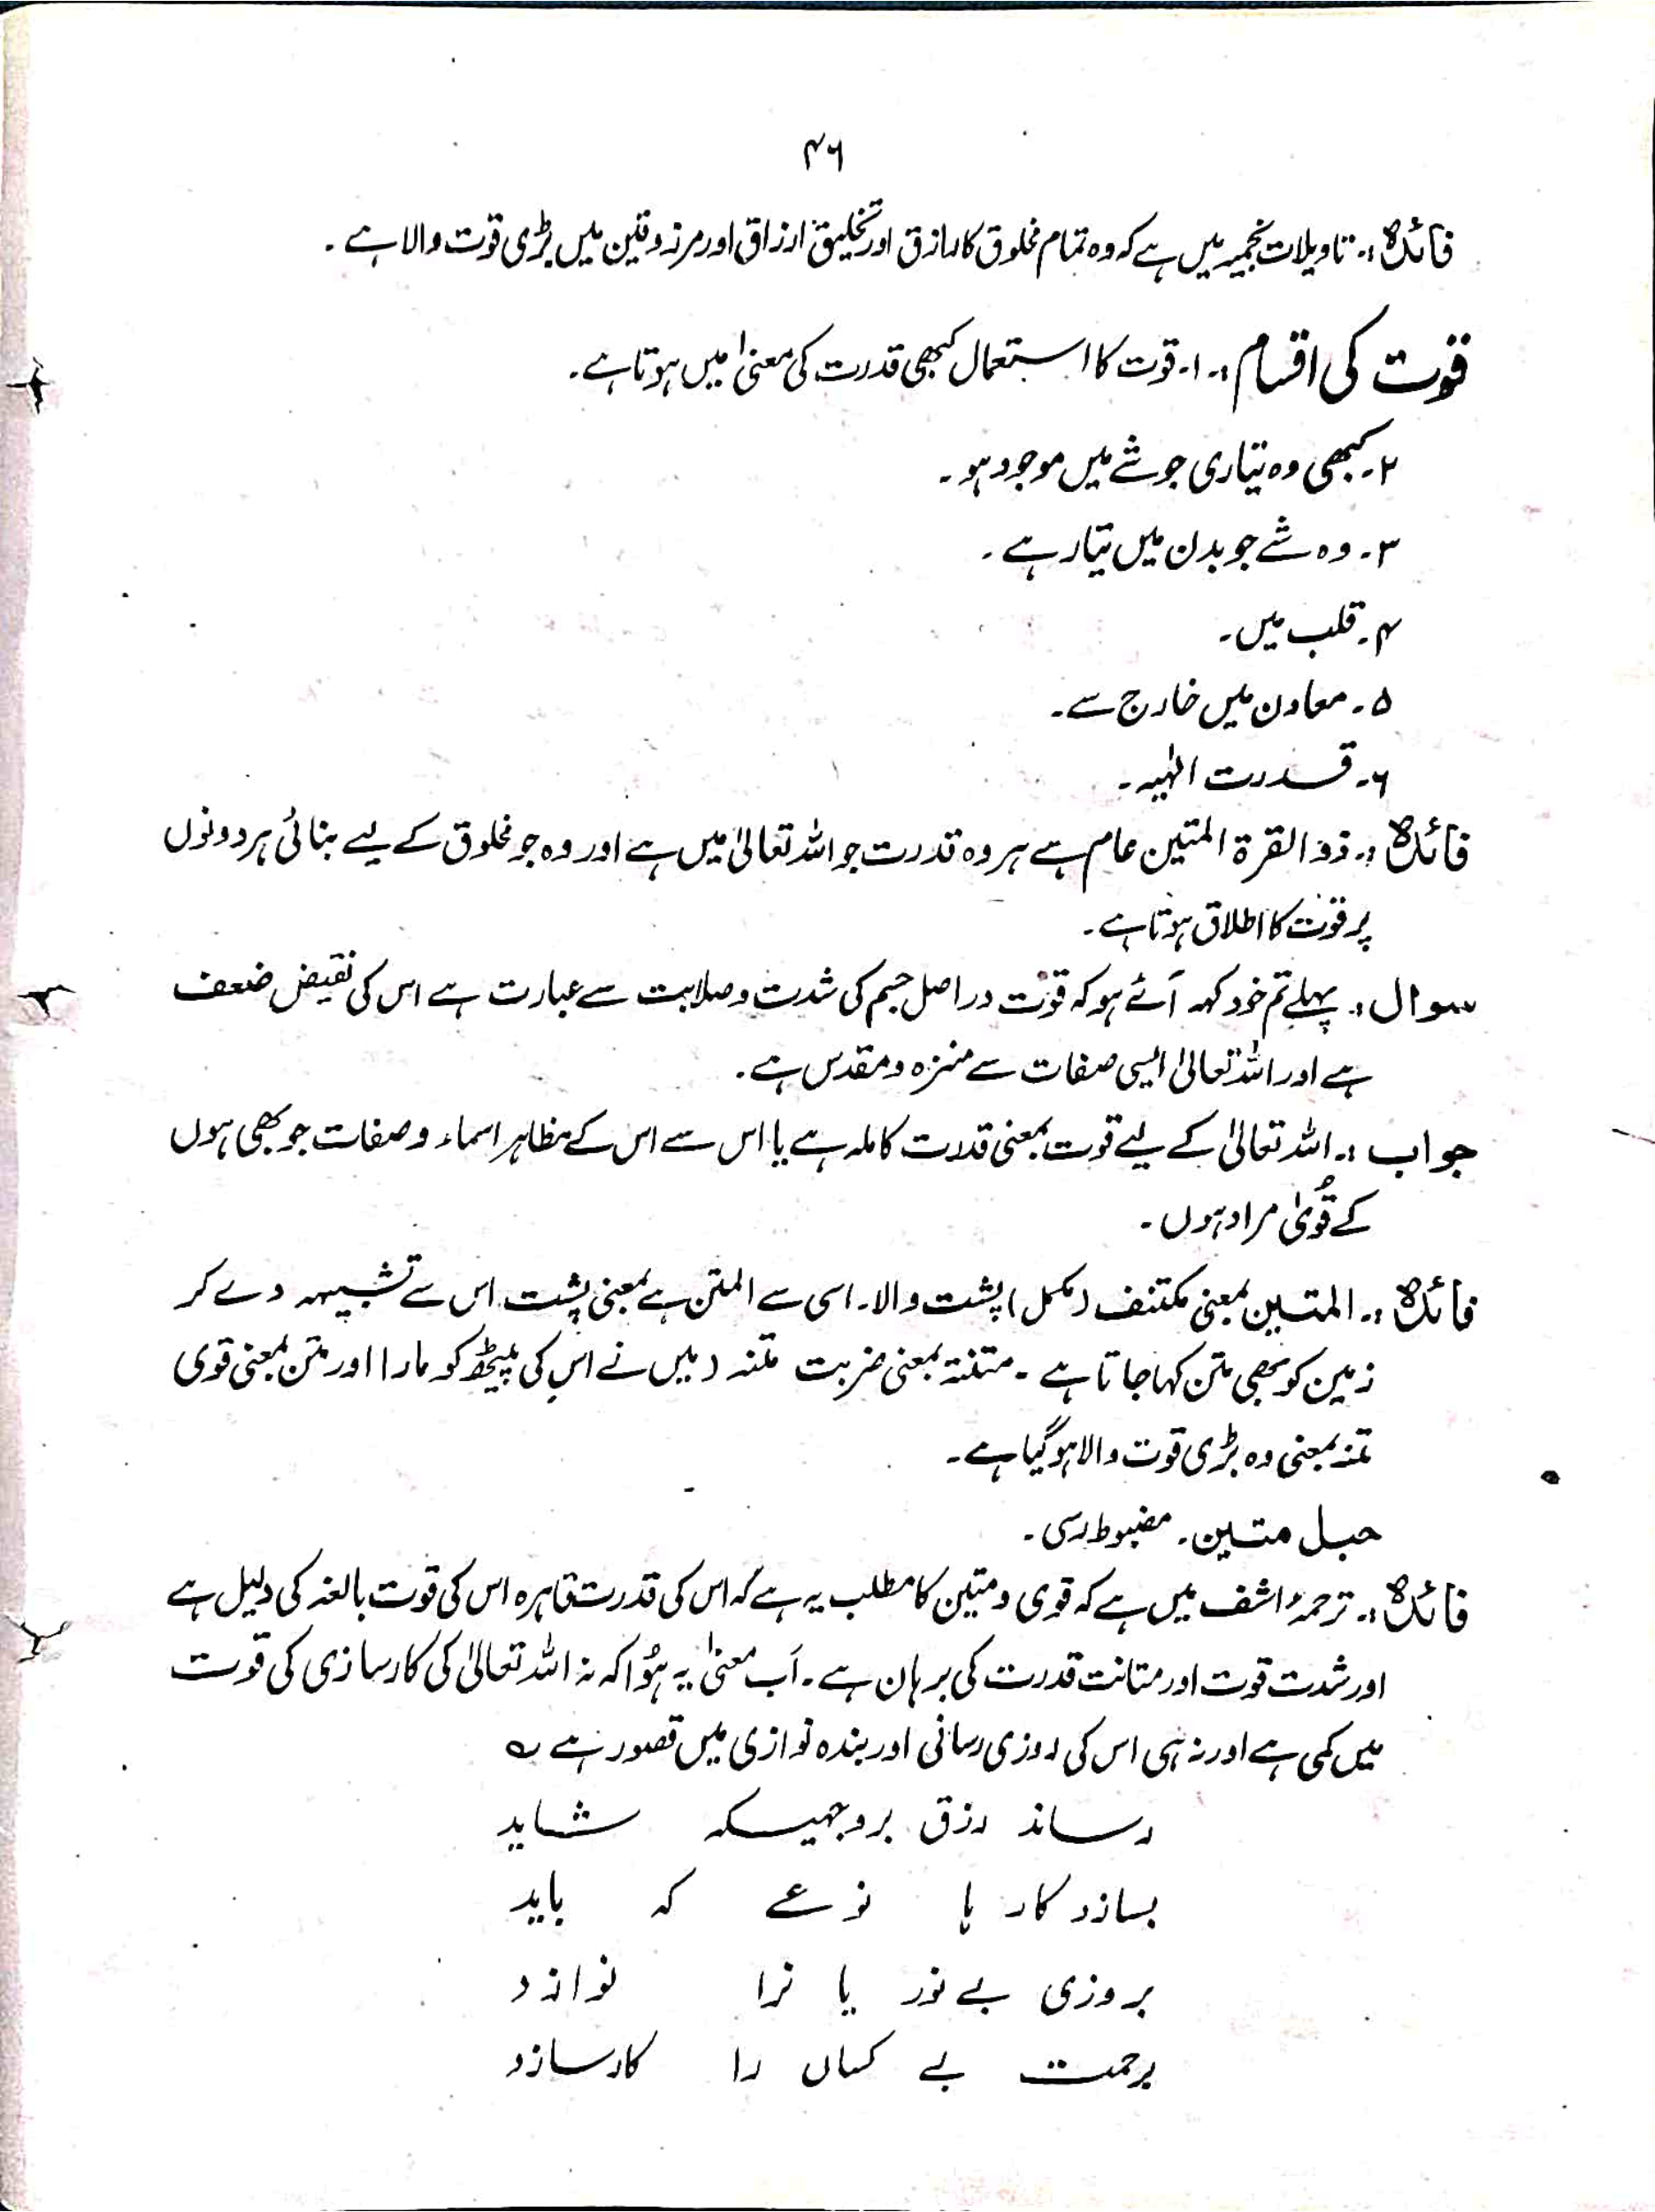 ۴۶
فائدہ :۔ تاویلات نجمیہ میں ہے کہ وہ تمام مخلوق کا رازق اور تخلیق ارزاق اور مرزوقین میں بڑی قوت والا ہے ۔
قوت کی اقسام :۔ ۱۔ قوت کا استعمال کبھی قدرت کی معنیٰ میں ہوتا ہے۔
۲۔ کبھی وہ تیاری جو شے میں موجود ہو ۔
۳۔ وہ شے جو بدن میں تیار ہے ۔
۴۔ قلب میں۔
۵۔ معاون میں خارج سے۔
۶۔ قدرت الٰہیہ۔
فائدہ :۔ ذو القرۃ المتین عام ہے ہر وہ قدرت جو اللہ تعالیٰ میں ہے اور وہ جو مخلوق کے لیے بنائی ہر دونوں
پر قوّت کا اطلاق ہوتا ہے۔
سوال :۔ پہلے تم خود کہہ آئے ہو کہ قوّت در اصل جسم کی شدت و صلابت سے عبارت ہے اس کی نقیض ضعف
ہے اور اللہ تعالیٰ ایسی صفات سے منزہ و مقدس ہے۔
جواب :۔ اللہ تعالیٰ کے لیے قوت بمعنی قدرت کاملہ ہے یا اس سے اس کے مظاہر اسماء و صفات جو بھی ہوں
کے قُویٰ مراد ہوں ۔
فائدہ :۔ المتین بمعنی مکتنف (مکمل) پشت والا۔ اسی سے المتن ہے بمعنی پشت اس سے تشبیہہ دے کر
زمین کو بھی متن کہا جاتا ہے ۔ متنتہ بمعنی ضربت متنہ (میں نے اس کی پیٹھ کو مارا اور متن بمعنی قوی
متنہ بمعنی وہ بڑی قوت والا ہو گیا ہے۔
حبل متین ۔ مضبوط رسی ۔
فائدہ :۔ ترجمۂ اشف میں ہے کہ قوی و متین کا مطلب یہ ہے کہ اس کی قدرت قاہرہ اس کی قوت بالغہ کی دلیل ہے
اور شدت قوت اور متانت قدرت کی برہان ہے ۔ اَب معنیٰ یہ ہُوا کہ نہ اللہ تعالیٰ کی کارسازی کی قوت
میں کمی ہے اور نہ ہی اس کی روزی رسانی اور بندہ نوازی میں قصور ہے ؎
رساند رزق بروجہیکہ شاید
بسازد کار ہا نوعے کہ باید
بروزی بے نور یا نرا نوازد
برحمت بے کساں را کارسازد